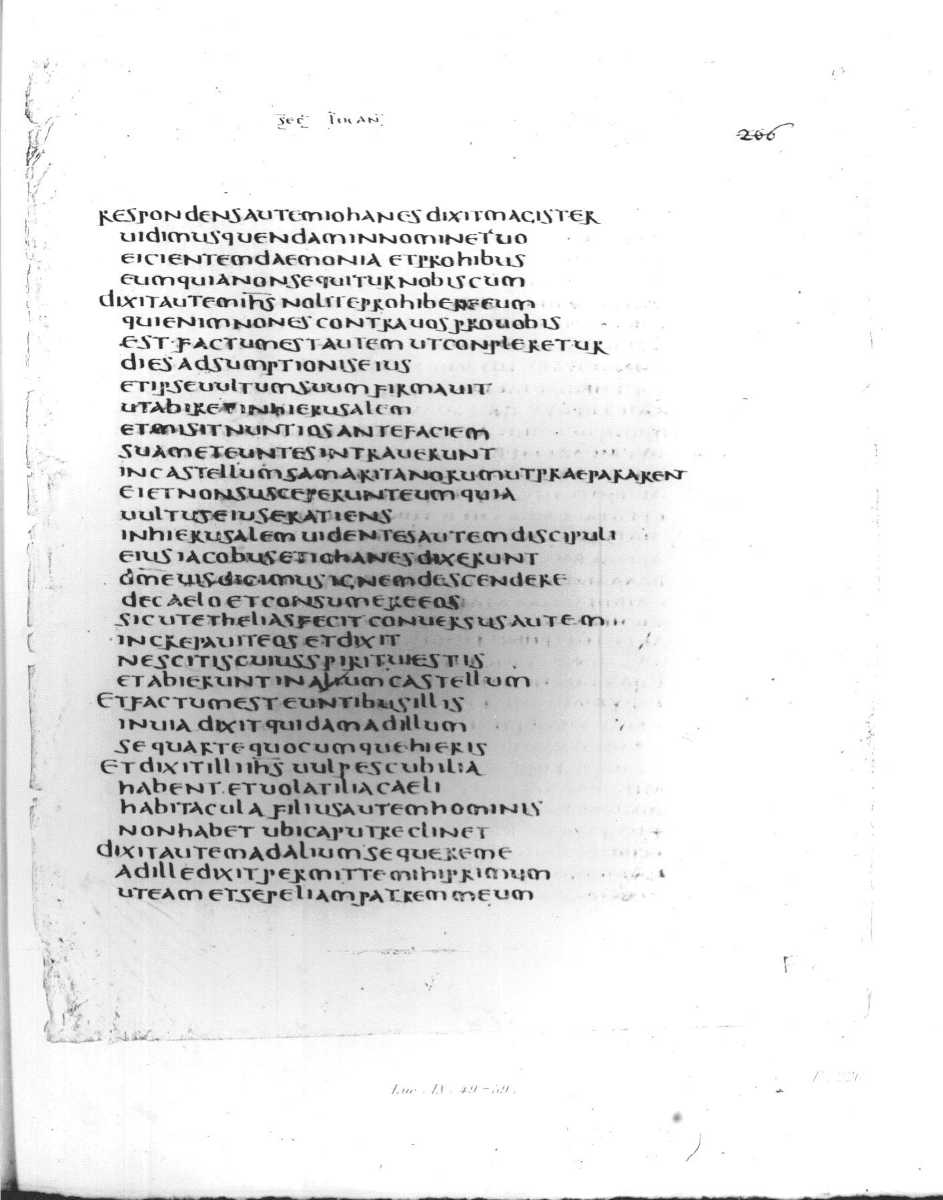 sec Iohan
266
RESPONDENSAUTEMIOHANESDIXITMAGISTER
UIDIMUSQUENDAMINNOMINETUO
EICIENTEMDAEMONIA ETPROHIBUS
EUMQUIANONSEQUITURNOBISCUM
DIXITAUTEMIHS NOLITEPROHIBEREEUM
QUIENIMNONESCONTRAUOSPROUOBIS
EST·FACTUMESTAUTEMUTCONPLERETUR
DIESADSUMPTIONISEIUS
ETIPSEUULTUMSUUMFIRMAUIT
UTABIRET INHIERUSALEM
ETMISITNUNTIOSANTEFACIEM
SUAMETEUNTESINTRAUERUNT
INCASTELLUMSAMARITANORUMUTPRAEPARARENT
EIETNONSUSCEPERUNTEUMQUIA
UULTUSEIUSERATIENS
INHIERUSALEMUIDENTESAUTEMDISCIPULI
EIUSIACOBUSETIOHANESDIXERUNT
DMEUISDICIMUSIGNEMDESCENDERE
DECAELOETCONSUMEREEOS
SICUTETHELIASFECIT CONUERSUSAUTEM
INCREPAUITEOS ETDIXIT
NESCITISCUIUSSPIRITUIESTIS
ETABIERUNTINALIUMCASTELLUM
ETFACTUMESTEUNTIBUSILLIS
INUIA DIXITQUIDAMADILLUM
SEQUARTEQUOCUMQUEHIERIS
ETDIXITILLIIHS UULPESCUBILIA
HABENT ETUOLATILIACAELI
HABITACULA FILIUSAUTEMHOMINIS
NONHABET UBICAPUTRECLINET
DIXITAUTEMADALIUMSEQUEREME
ADILLEDIXITPERMITTEMIHIPRIMUM
UTEAMETSEPELIAMPATREMMEUM
Luc. IX. 49-59.